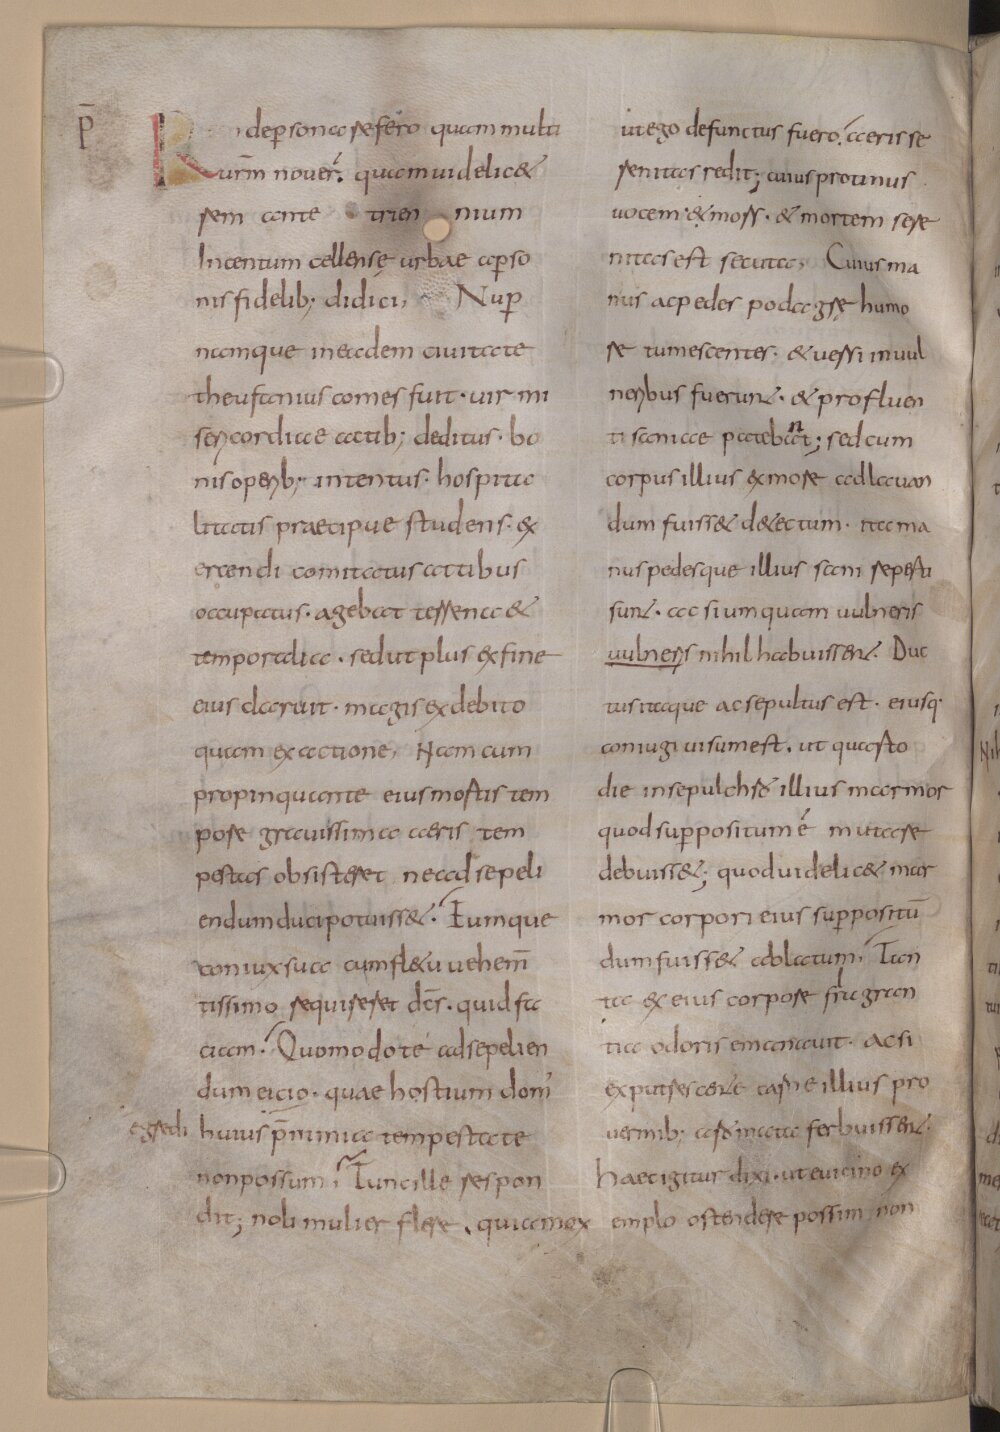 p̄
R depersona refero quam multi
urm̄ nouer̄. quam uidelic&
rem ante trien nium
Incentum cellensę urbae ap̱so
nis fidelib; didici, Nup̱
namque ineadem ciuitate
theufanius comes fuit· uir mi
sericordiae actib; deditus· bo
nis operib;· intentus· hospita
litatis praecipue studens· ex
ercendi comitatus actibus
occupatus· agebat terrena &
temporalia· sedut plus exfine
eius claruit· magis exdebito
quam exactione, Nam cum
propinquante eius mortis tem
pore grauissima aeris tem
pestas obsisteret nead sepeli
endum duci potuisse&. Eumque
coniux sua cum fl&u uehem̄
tissimo requireret dc̄s· quid fa
ciam. Quomodo té adsepelien
dum eicio· quae hostium dom̄
egredi
huius p̄ nimia tempestate
non possum, Tunc ille respon
dit; noli mulier flere, quia mox
ut ego defunctus fuero. aeris se
renitas redit; cuius protinus
uocem & mors· & mortem sere
nitas est secuta, Cuius ma
nus ac pedes podagrę humo
re tumescentes· & uersi inuul
neribus fuerunt· & profluen
ti saniae patebant; sed cum
corpus illius exmore ad lauan
dum fuiss& d&ectum· ita ma
nus pedesque illius sani reperti
sunt· ac si umquam uulneris
uulneris nihil habuissent. Duc
tus itaque ac sepultus est· eiusq·
coniugi uisum est. ut quarto
die insepulchro illius marmor
quod sup̱positum ē mutare
debuiss&; quod uidelic& mar
mor corpori eius sup̱positū
dum fuiss& ablatum, Tan
ta ex eius corpore fraglan
tia odoris emanauit· ac si
exputrescente carne illius pro
uermib; aromata ferbuissent.
haec igitur dixi· ut euicino ex
emplo ostendere possim non